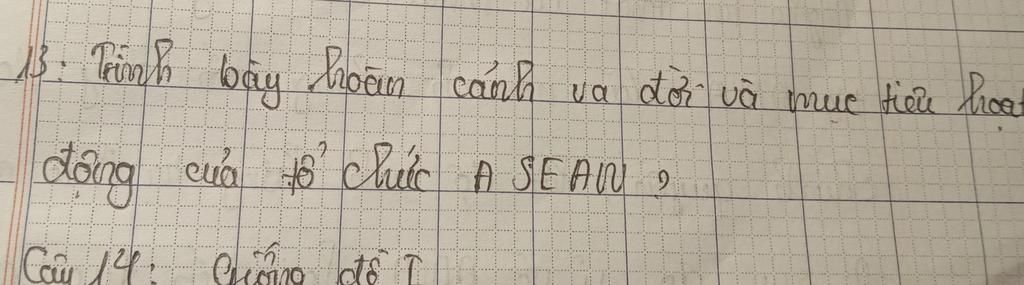 13: Trình bày hoàn cảnh ra đời và mục tiêu hoạt
động của tổ chức ASEAN?
Câu 14: